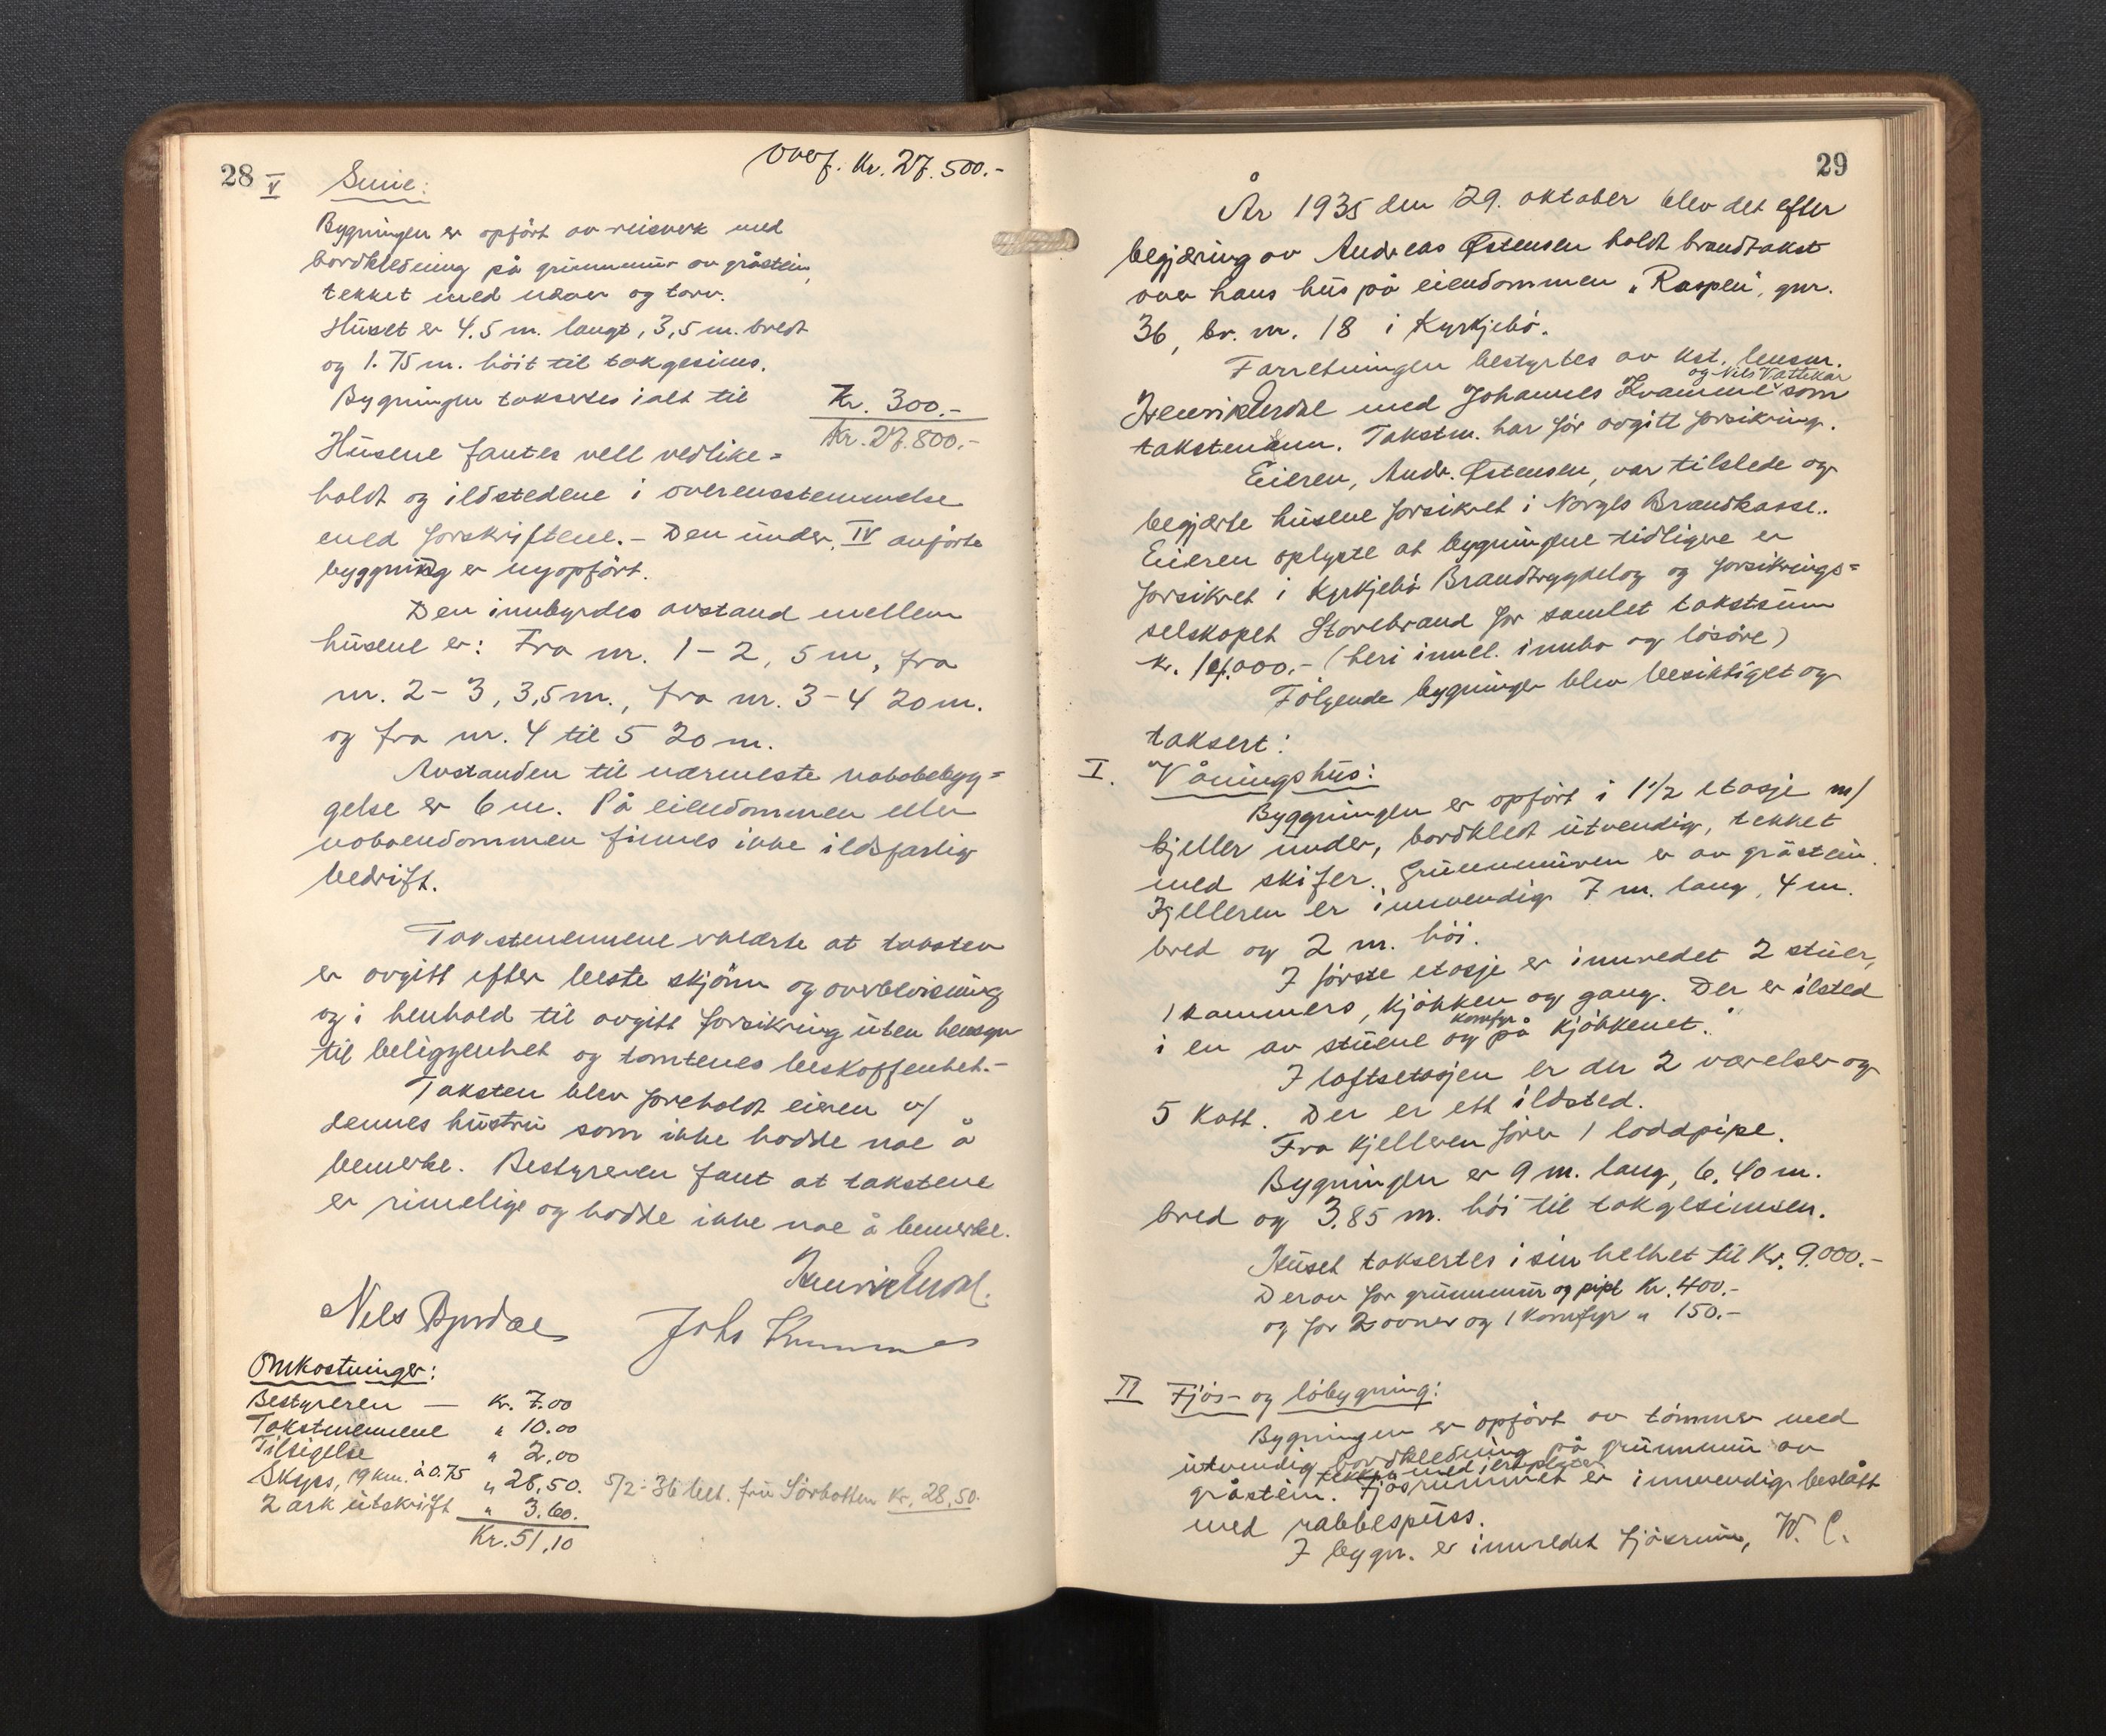 28
Overf. Kr. 27.500.-
V Smie:
Bygningen er opført av reisverk med
bordkledning på grunnmur av gråstein,
tekket med never og torv.
Huset er 4.5 m. langt, 3,5 m. bredt
og 1.75 m. höit til takgesims.
Bygningen takseres i alt til Kr. 300.-
Kr. 27.800.-
Husene fantes vell vedlike=
holdt og ildstedene i overensstemmelse
med forskriftene. - Den under IV anförte
byggning er nyopfört.
Den innbyrdes avstand mellem
husene er: Fra nr. 1-2, 5 m, fra
nr. 2-3, 3,5 m., fra nr. 3-4 20 m.
og fra nr. 4 til 5 20 m.
Avstanden til nærmeste nabobebyg=
gelse er 6 m. På eiendommen eller
naboendommen finnes ikke ildsfarlig
bedrift.
Takstmennene erklærte at taksten
er avgitt efter beste skjönn og overbevisning
og i henhold til avgitt forsikring uten hensyn
til beliggenhet og tomtenes beskaffenhet.-
Taksten blev foreholdt eieren v/
dennes hustru som ikke hadde noe å
bemerke. Bestyreren fant at takstene
er rimelige og hadde ikke noe å bemerke.
Henrik
Nels Johs
Omkostninger:
Bestyreren — Kr. 7.00
Takstmennene " 10.00
Tilsigelse " 2.00
Skyss, 19 km. à 0.75 " 28,50.
5/2-36 bet. fru Sörbotten Kr. 28,50.
2 ark utskrift " 3.60.
Kr. 51,10
29
År 1935 den 29. oktober blev det efter
begjæring av Andreas Østensen holdt brandtakst
over hans hus på eiendommen "Raspen", gnr.
36, br. nr. 18 i Kyrkjebö.
Forretningen bestyrtes av kst. lensm.
og Nils Vattekar
Henrik Erdal med Johannes Kvamme som
takstmenn. Takstm. har för avgitt forsikring.
Eieren, Andr. Østensen, var tilstede og
begjærte husene forsikret i Norges Brandkasse..
Eieren oplyste at bygningene tidligere er
forsikret i Kyrkjebö Brandtrygdelag og forsikrings=
selskapet Storebrand for samlet takstsum
kr. 14.000.- (heri innel. innbo og lösöre)
Fölgende bygninger blev besiktiget og
taksert:
I. Våningshus:
Byggningen er opfört i 1 1/2 etasje m/
kjeller under, bordkledt utvendig, tekket
med skifer. Grunnmuren er av gråstein.
Kjelleren er innvendig 7 m. lang, 4 m.
bred og 2 m. höi.
I förste etasje er innredet 2 stuer,
1 kammers, kjökken og gang. Der er ilsted
komfyr
i en av stuene og på kjökkenet.
I loftsetasjen er der 2 værelser og
5 kott. Der er ett ildsted.
Fra kjelleren förer 1 loddpipe.
Bygningen er 9 m. lang, 6.40 m.
bred og 3.85 m. höi til takgesimsen.
Huset takseres i sin helhet til Kr. 9.000.-
Derav for grunnmur og pipe Kr. 400.-
og for 2 ovner og 1 komfyr " 150.-
II Fjös- og löbygning:
Bygningen er opfört av tömmer med
utvendig bordkledning på grunnmur av
tekket med
gråstein. Fjösrummet er innvendig beslått
med rabbespuss.
I bygn. er innredet fjösrum, W. C.